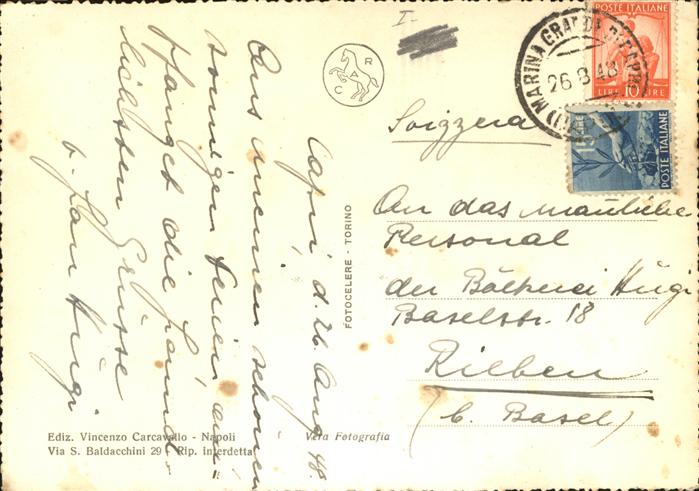 I.
CARC
POSTE ITALIANE
LIRE 10 LIRE
MARINA GRANDE DI CAPRI
26 8 48
POSTE ITALIANE
Svizzera
An das männliche
Personal
der Bäckerei Hügi
Baselstr. 18
Riehen
(b. Basel)
Capri, d. 26. Aug 48
Aus meinen schönen
sonnigen Ferien
empfanget die
Grüsse
v. Jan Hügi
FOTOCELERE - TORINO
Ediz. Vincenzo Carcavallo - Napoli
Via S. Baldacchini 29 - Rip. interdetta
Vera Fotografia